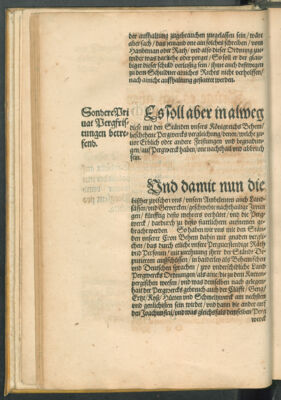 der auffhaltung zugebrauchen zugelassen sein / wäre
aber sach / das jemand one ain solches schreiben / vom
Hauptman oder Rath / und also dieser Ordnung zu-
wider was darliche oder porget / So soll er der glau-
biger dieser schuld verlustig sein / ihme auch destwegen
zu dem Schuldner ainiches Rechts nicht verholffen /
noch ainiche auffhaltung gestattet werden.
Sondere Pri
uat Pergfrei-
ungen betref-
fend.
Es soll aber in alweg
diese mit den Ständen unsers Königreichs Behem /
beschehene Pergwercks vergleichung / denen / welche zu-
vor Erblich oder andere Freyungen und begnadun-
gen / auf Pergwerck haben / one nachtheil und abbruch
sein.
Und damit nun die
bißher zwischen uns / unsern Ambtleuten auch Land-
säßen / und Gewercken / geschwebte nachtheilige Irrun-
gen / künfftig desto mehrers verhütet / und die Perg-
werck / dardurch zu desto stattlichern aufnemen ge-
bracht werden So haben wir uns mit den Stän-
den unserer Cron Behem dahin mit gnaden vergli-
chen / das durch etliche unsere Pergverstendige Räth
und Personen / mit zuziehung ihrer der Stände De-
putirten außschüssen / in baiderlei als Behemischen
und Deutschen sprachen / zwo underschidliche Land
Pergwercks Ordnungen / als aine zu den Ratten-
pergischen wesen / und was demselben nach gelegen-
hait der Pergwercks gebrauch auch der Clüfft / Geng /
Ertz / Röst / Hütten und Schmeltzwerck am nechsten
und gemlichsten sein würdet / und dann die ander auf
den Joachimstal / und was gleichsfals demselben Perg
werck